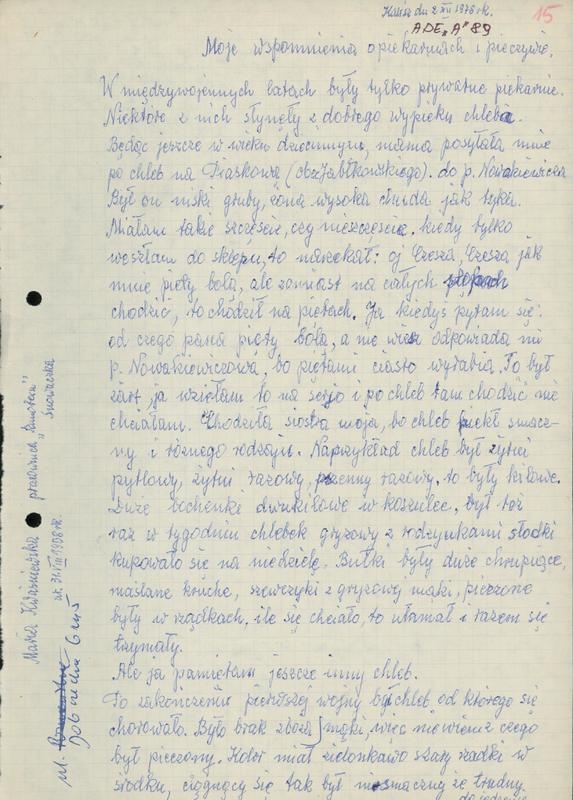 Kalisz dn 2 XII 1978 rk.
15
ADE „A" 89
Moje wspomnienia o piekarniach i pieczywie.
W międzywojennych latach były tylko prywatne piekarnie.
Niektóre z nich słynęły z dobrego wypieku chleba.
Będąc jeszcze w wieku dziecinnym, mama posyłała mnie
po chleb na Piaskową (ob. Jabłkowskiego). do p. Nowakiewicza
Był on niski gruby, żona wysoka chuda jak tyka.
Miałam takie szczęście, czy nieszczęście. kiedy tylko
weszłam do sklepu, to narzekał: oj Czesza, Czesza jak
mnie pięty bolą, ale zamiast na całych stopach
chodzić, to chodził na piętach. Ja kiedyś pytam się:
od czego pana pięty bolą, a nie wiesz odpowiada mi
p. Nowakiewiczowa, bo piętami ciasto wyrabia. To był
żart, ja wzięłam to na serjo i po chleb tam chodzić nie
chciałam. Chodziła siostra moja, bo chleb piekł smacz-
ny i różnego rodzaju. Naprzykład chleb był żytni
pytlowy, żytni razowy, pszenny razowy, to były kilowe.
Duże bochenki dwukilowe w koszulce, był też
raz w tygodniu chlebek gryzowy z rodzynkami słodki
kupowało się na niedzielę. Bułki były duże chrupiące,
maślane kruche, szewczyki z gryzowej mąki, pieczone
były w rządkach, ile się chciało, to ułamał i razem się
trzymały.
Ale ja pamiętam jeszcze inny chleb.
Po zakończeniu pierwszej wojny był chleb, od którego się
chorowało. Było brak zboża i mąki, więc nie wiem z czego
był pieczony. Kolor miał zielonkawo szary rzadki w
środku, ciągnący się tak był niesmaczny że trudny
do jedzenia
Maria
pracownica „Runotex"
ur. 31 VIII 1908 rk.
ul.
Dobrzecka